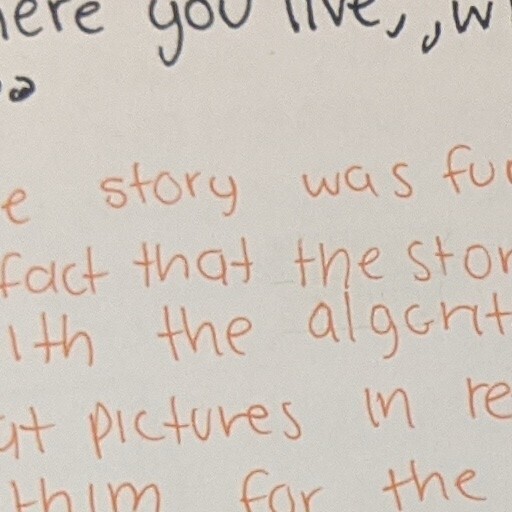 here you live, , w
e story was fu
fact that the stor
ith the algorit
at pictures in re
thim for the